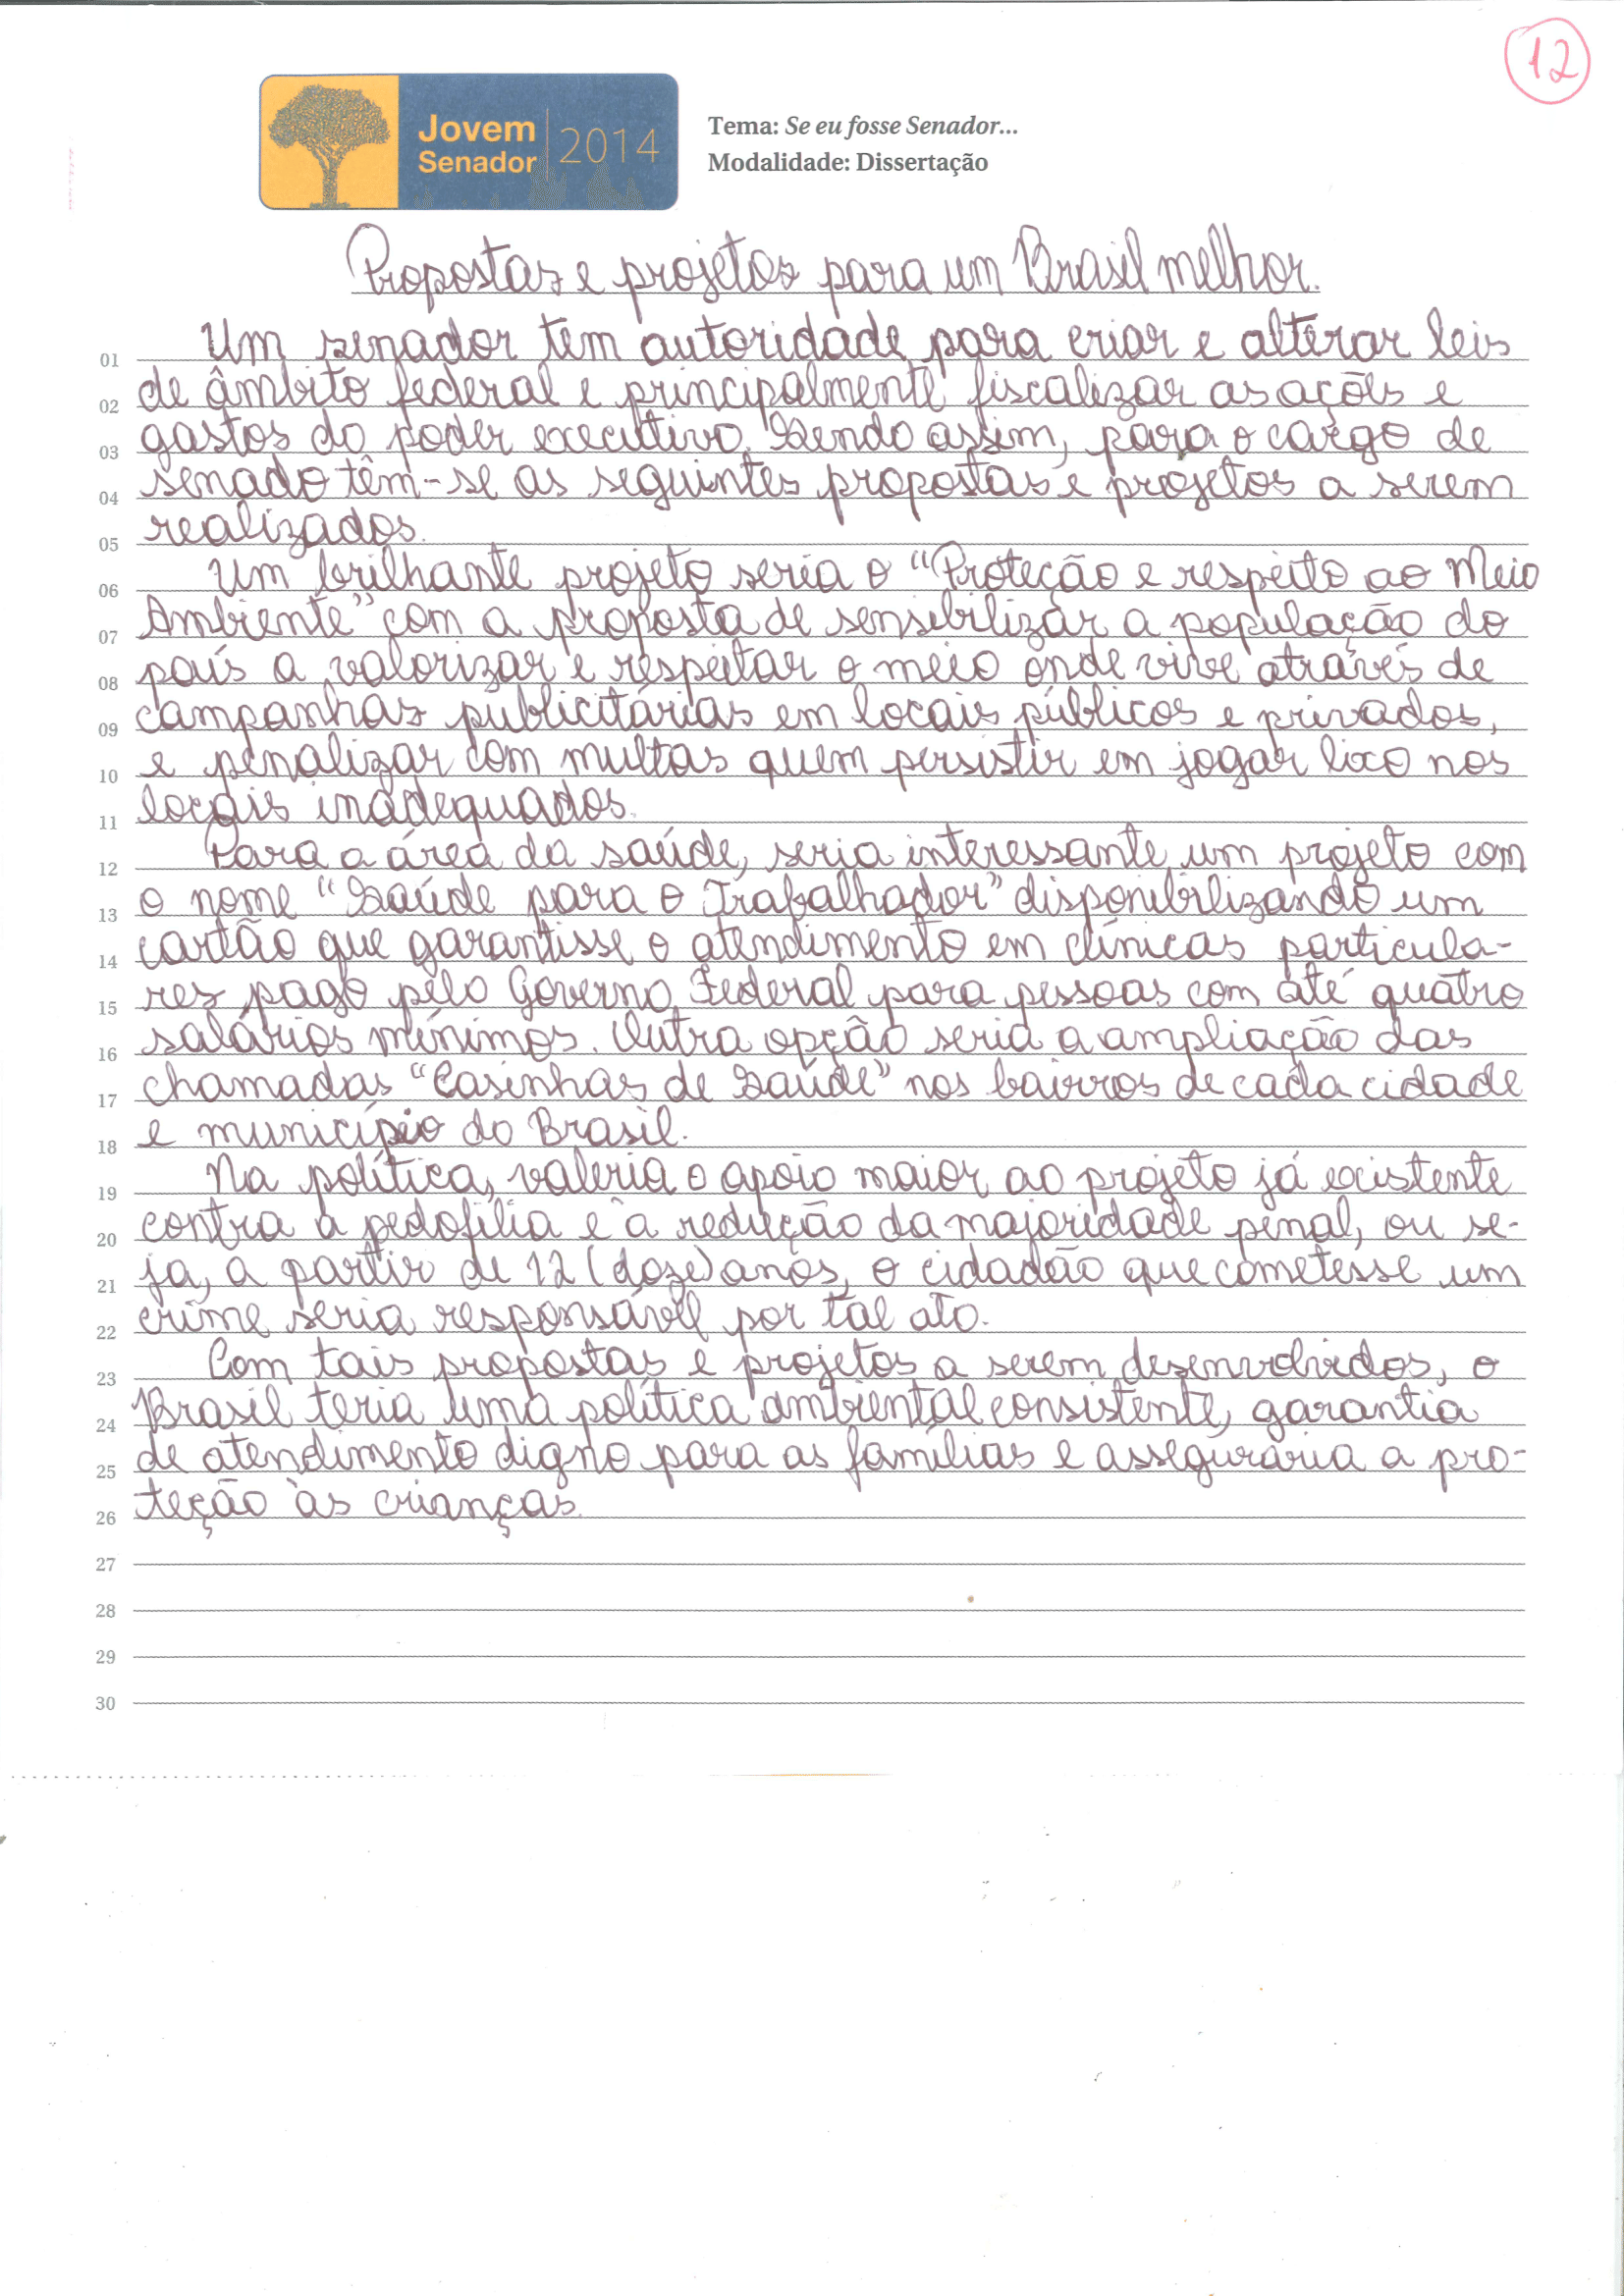 12
Jovem
Senador
2014
Tema: Se eu fosse Senador...
Modalidade: Dissertação
Propostas e projetos para um Brasil melhor.
01 Um senador tem autoridade para criar e alterar leis
02 de âmbito federal e principalmente fiscalizar as ações e
03 gastos do poder executivo. Sendo assim, para o cargo de
04 senado têm-se as seguintes propostas e projetos a serem
05 realizados.
06 Um brilhante projeto seria o “Proteção e respeito ao Meio
07 Ambiente” com a proposta de sensibilizar a população do
08 país a valorizar e respeitar o meio onde vive através de
09 campanhas publicitárias em locais públicos e privados,
10 e penalizar com multas quem persistir em jogar lixo nos
11 locais inadequados.
12 Para a área da saúde, seria interessante um projeto com
13 o nome “Saúde para o Trabalhador” disponibilizando um
14 cartão que garantisse o atendimento em clínicas particula-
15 res pago pelo Governo Federal para pessoas com até quatro
16 salários mínimos. Outra opção seria a ampliação das
17 chamadas “Casinhas de Saúde” nos bairros de cada cidade
18 e município do Brasil.
19 Na política, valeria o apoio maior ao projeto já existente
20 contra a pedofilia e a redução da majoridade penal, ou se-
21 ja, a partir de 12 (doze) anos, o cidadão que cometesse um
22 crime seria responsável por tal ato.
23 Com tais propostas e projetos a serem desenvolvidos, o
24 Brasil teria uma política ambiental consistente, garantia
25 de atendimento digno para as famílias e asseguraria a pro-
26 teção às crianças.
27
28
29
30